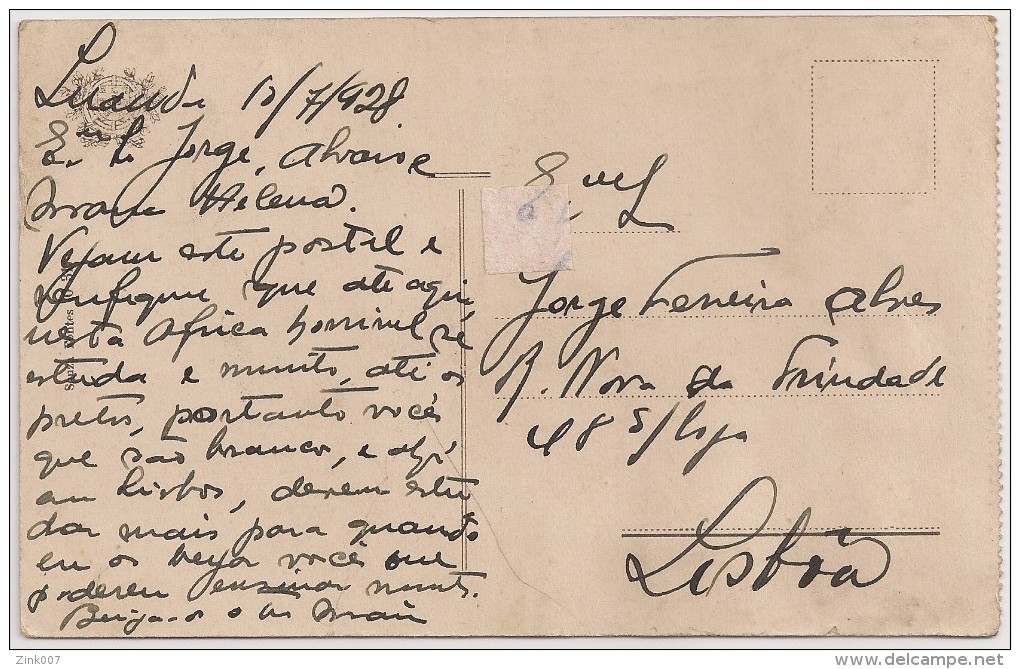 Luanda 10/7/928
Jorge, Alvaro e
Maria Helena.
Vejam este postal e
verifiquem que até aqui
nesta Africa horrivel se
estuda e muito, até os
pretos, portanto vocês
que são brancos, e ahi
em Lisboa, devem estu
dar mais para quando
eu os veja vocês me
poderem ensinar muito.
Beija-os o
Jorge Ferreira Alves
R. Nova da Trindade
48 s/loja
Lisbôa
Zink007
www.delcampe.net